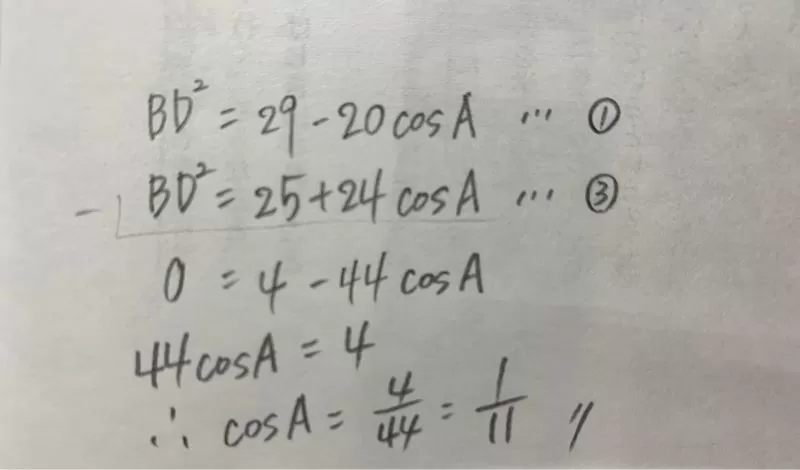 BD² = 29 - 20 cos A … ①
- BD² = 25 + 24 cos A … ③
0 = 4 - 44 cos A
44 cos A = 4
∴ cos A = 4/44 = 1/11 〃